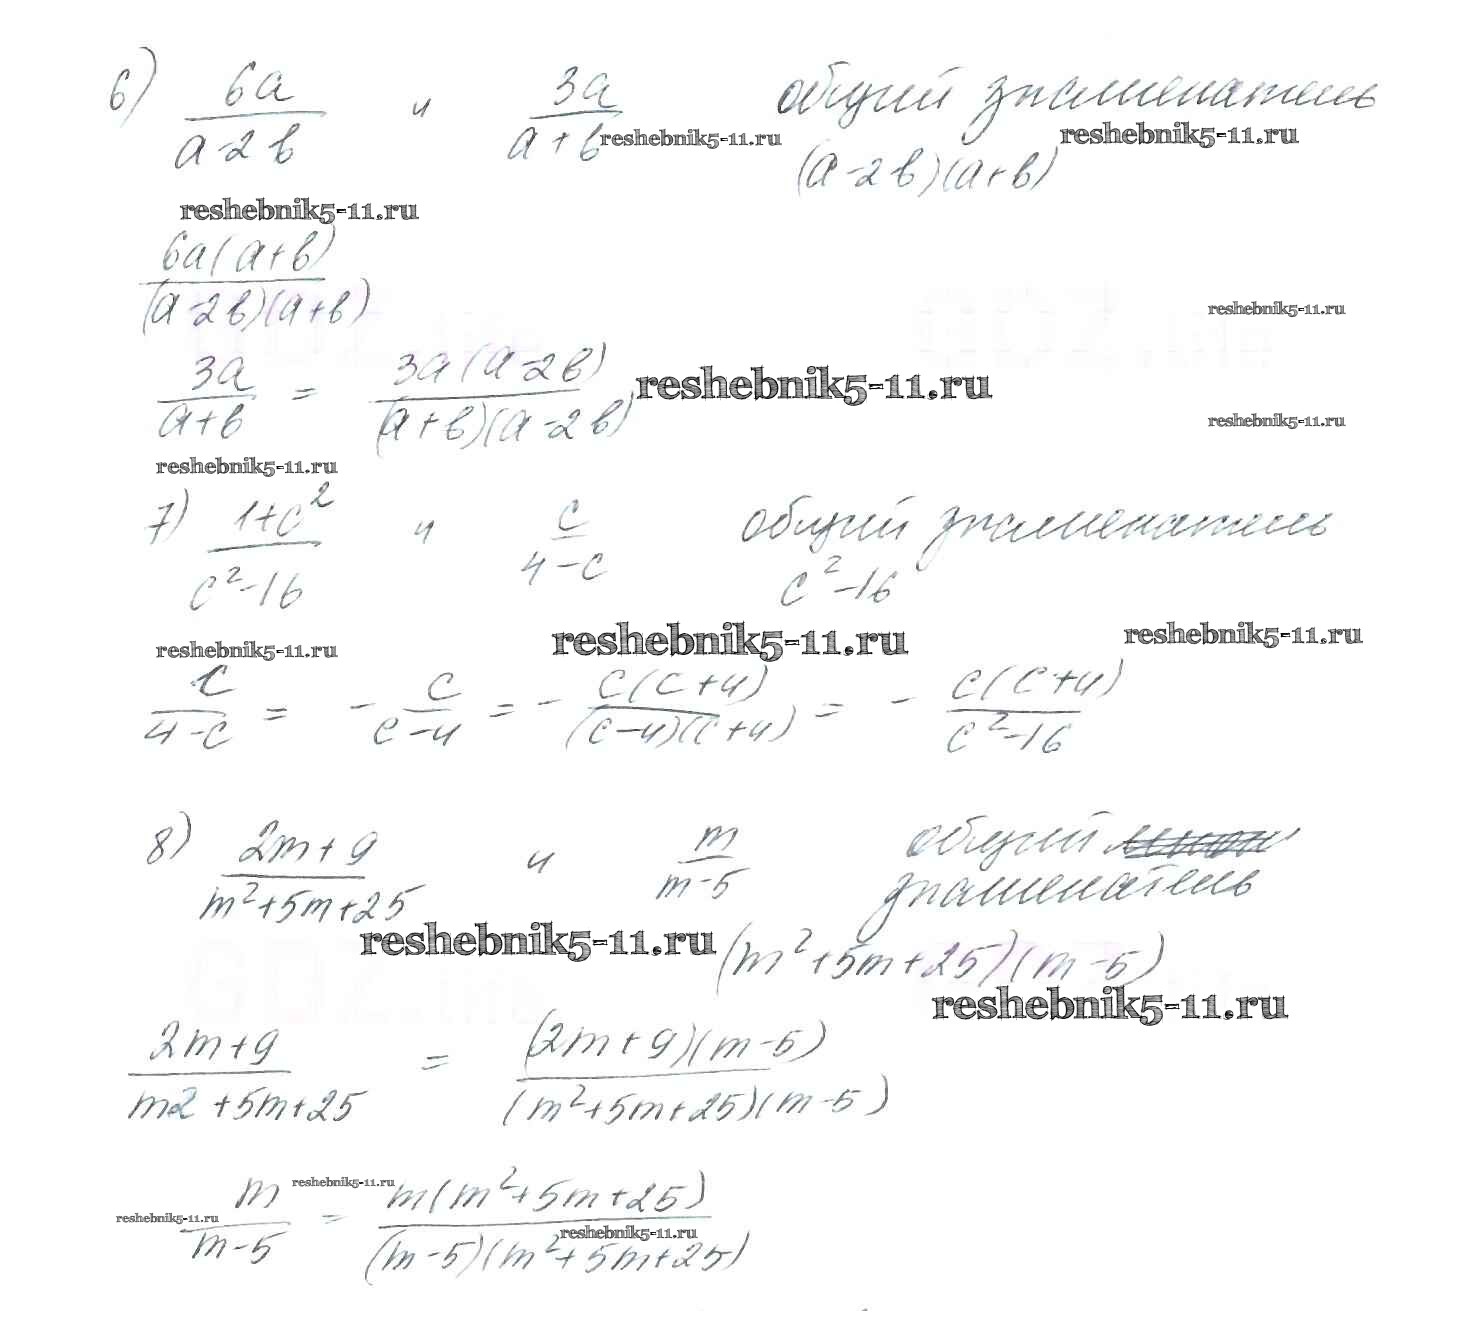 6) 6a/(a-2b) и 3a/(a+b) общий знаменатель
reshebnik5-11.ru reshebnik5-11.ru
(a-2b)(a+b)
reshebnik5-11.ru
6a(a+b)/(a-2b)(a+b)
reshebnik5-11.ru
3a/(a+b) = 3a(a-2b)/(a+b)(a-2b) reshebnik5-11.ru
reshebnik5-11.ru
reshebnik5-11.ru
7) (1+c²)/(c²-16) и c/(4-c) общий знаменатель
c²-16
reshebnik5-11.ru reshebnik5-11.ru reshebnik5-11.ru
c/(4-c) = - c/(c-4) = - c(c+4)/(c-4)(c+4) = - c(c+4)/(c²-16)
8) (2m+9)/(m²+5m+25) и m/(m-5) общий
знаменатель
reshebnik5-11.ru (m²+5m+25)(m-5)
reshebnik5-11.ru
(2m+9)/(m2+5m+25) = (2m+9)(m-5)/(m²+5m+25)(m-5)
reshebnik5-11.ru
reshebnik5-11.ru
m/(m-5) = m(m²+5m+25)/(m-5)(m²+5m+25)
reshebnik5-11.ru